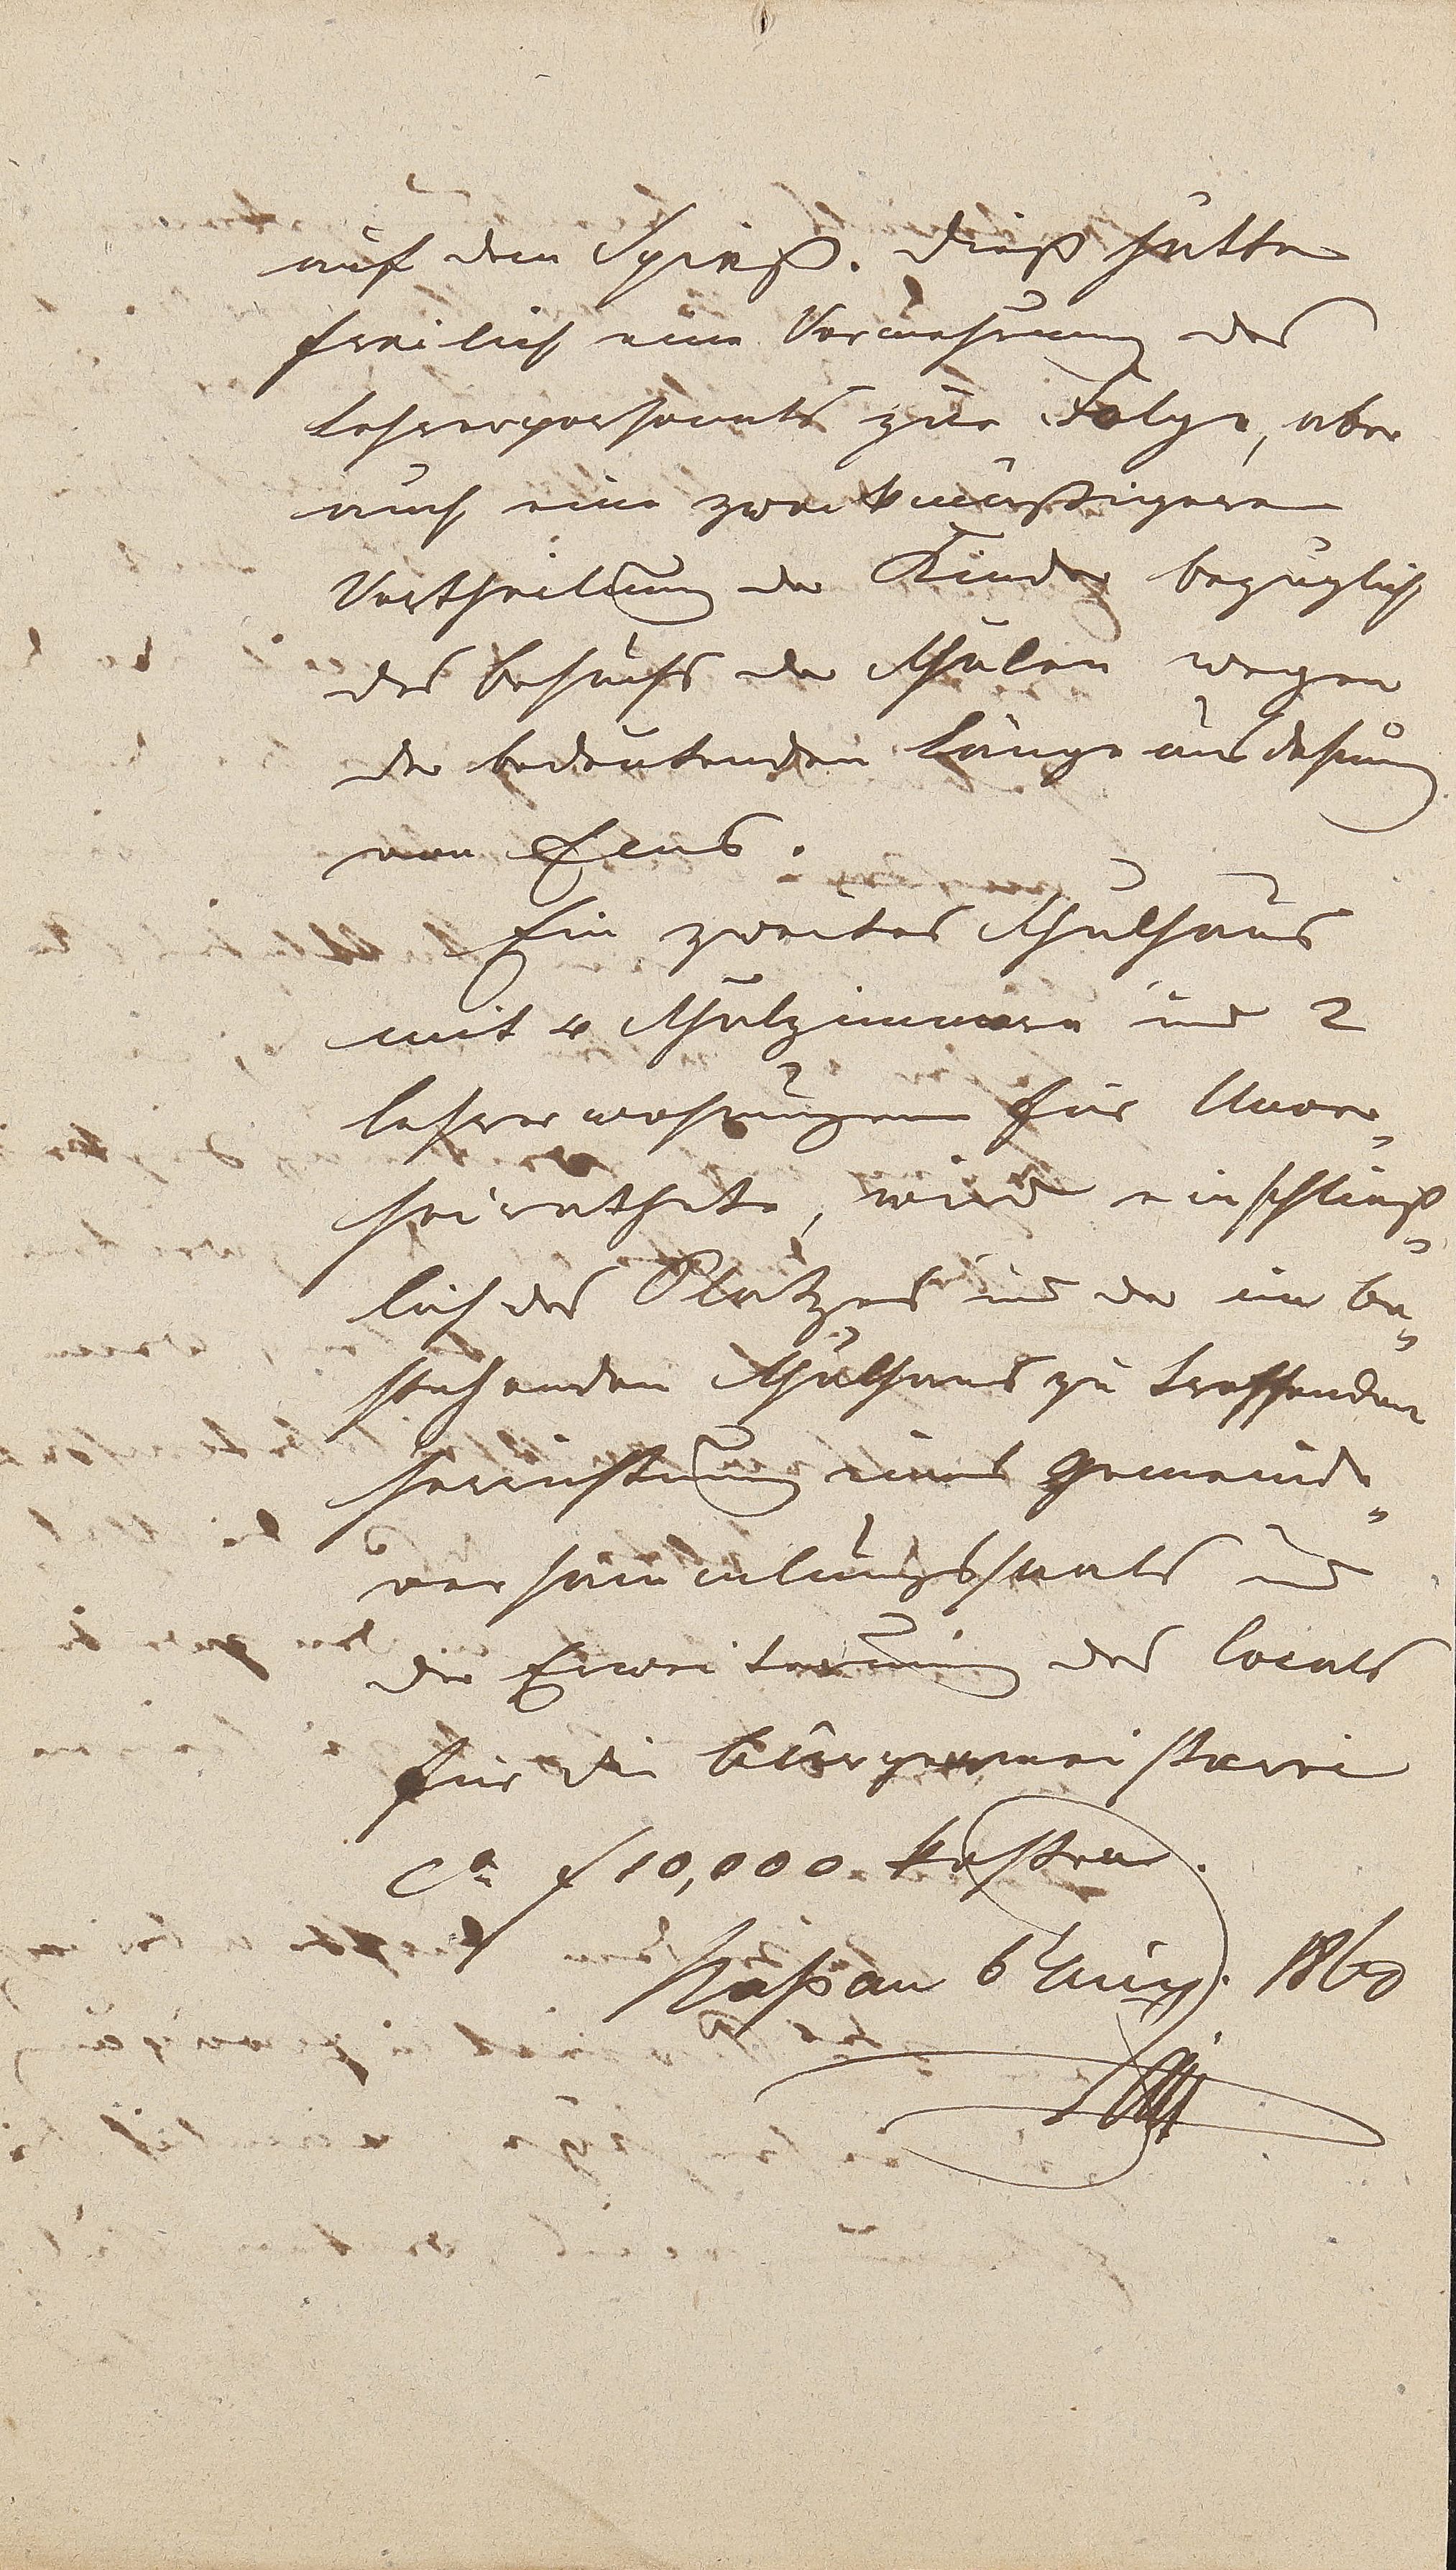 auf dem Spieß. Dieß hätte
freilich eine Vermehrung des
Lehrerpersonals zur Folge, aber
auch eine zweckmäßigere
Vertheilung der Kinder bezüglich
des Besuchs der Schulen wegen
der bedeutenden Längeausdehnung
von Ems.
Ein zweites Schulhaus
mit 4 Schulzimmern und 2
Lehrerwohnungen für Unver„
heirathete, wird einschließ„
lich des Platzes und der im be„
stehenden Schulhaus zu treffenden
Herrichtung eines Gemeinde„
versammlungssaals und
der Erweiterung des Locals
für die Bürgermeisterei
ca f 10,000 kosten.
Nassau 6 Aug. 1860